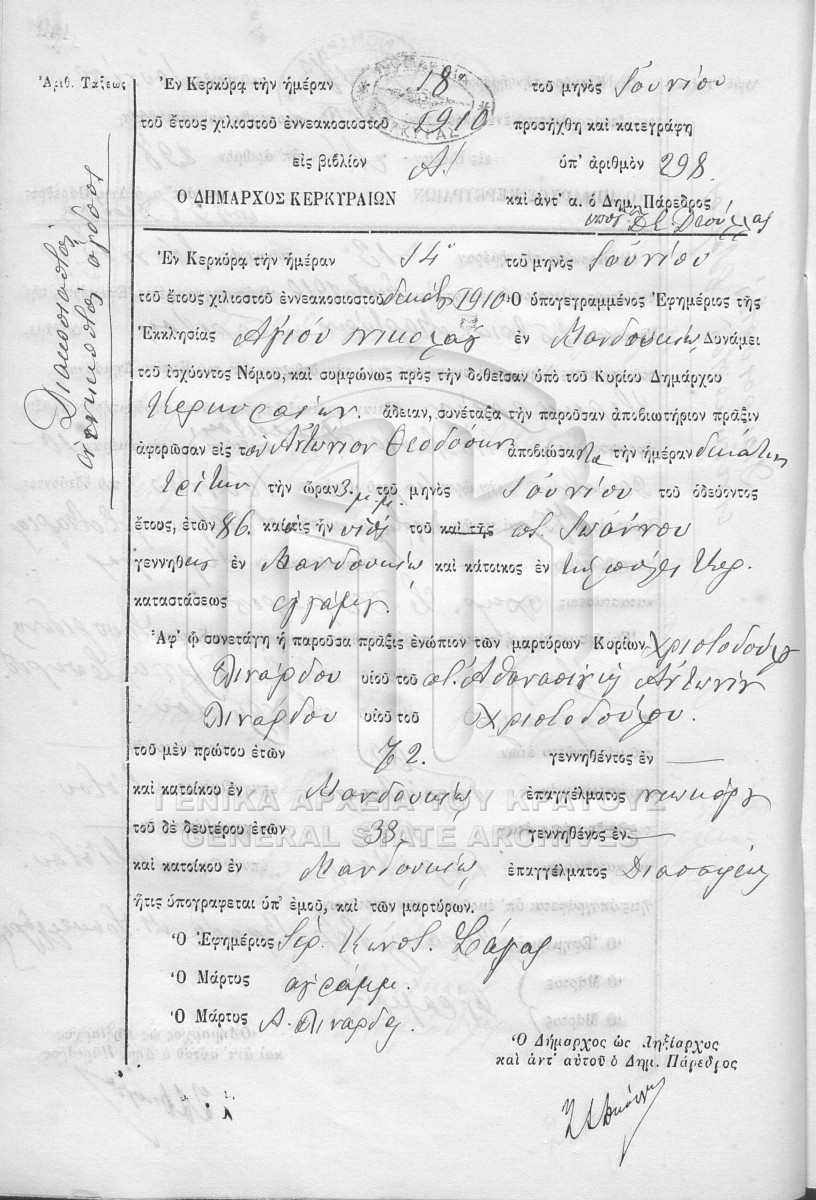 Ἀριθ. Τάξεως
Διακοσιοστὸς
ἐννενηκοστὸς ὄγδοος
Ἐν Κερκύρᾳ τὴν ἡμέραν 18 τοῦ μηνὸς Ἰουνίου
τοῦ ἔτους χιλιοστοῦ ἐννεακοσιοστοῦ 1910 προσήχθη καὶ κατεγράφη
εἰς βιβλίον Α! ὑπ' ἀριθμὸν 298
Ὁ ΔΗΜΑΡΧΟΣ ΚΕΡΚΥΡΑΙΩΝ καὶ ἀντ' α. ὁ Δημ. Πάρεδρος
Ἐν Κερκύρᾳ τὴν ἡμέραν 14 τοῦ μηνὸς Ἰουνίου
τοῦ ἔτους χιλιοστοῦ ἐννεακοσιοστοῦ δεκάτου 1910 Ὁ ὑπογεγραμμένος Ἐφημέριος τῆς
Ἐκκλησίας Ἁγίου Νικολάου ἐν Μανδουκίῳ Δυνάμει
τοῦ ἰσχύοντος Νόμου, καὶ συμφώνως πρὸς τὴν δοθεῖσαν ὑπὸ τοῦ Κυρίου Δημάρχου
Κερκυραίων. ἄδειαν, συνέταξα τὴν παροῦσαν ἀποβιωτήριον πρᾶξιν
ἀφορῶσαν εἰς τὸν Ἀντώνιον ἀποβιώσαντα τὴν ἡμέραν δεκάτην
τρίτην τὴν ὥραν 3. μ.μ. τοῦ μηνὸς Ἰουνίου τοῦ ὁδεύοντος
ἔτους, ἐτῶν 86. καὶ ὅστις ἦν υἱὸς τοῦ καὶ τῆς ποτ. Ἰωάννου
γεννηθεὶς ἐν Μανδουκίῳ καὶ κάτοικος ἐν
καταστάσεως ἔγγαμος.
Ἀφ' ᾧ συνετάγη ἡ παροῦσα πρᾶξις ἐνώπιον τῶν μαρτύρων Κυρίων Χριστοδούλου
Λινάρδου υἱοῦ τοῦ ποτ. Ἀθανασίου Ἀντωνίου
Λινάρδου υἱοῦ τοῦ Χριστοδούλου.
τοῦ μὲν πρώτου ἐτῶν 72. γεννηθέντος ἐν —
καὶ κατοίκου ἐν Μανδουκίῳ ἐπαγγέλματος
τοῦ δὲ δευτέρου ἐτῶν 38. γεννηθένος ἐν —
καὶ κατοίκου ἐν Μανδουκίῳ ἐπαγγέλματος
ἥτις ὑπογράφεται ὑπ' ἐμοῦ, καὶ τῶν μαρτύρων.
Ὁ Ἐφημέριος Ἱερ. Κωνστ.
Ὁ Μάρτυς ἀγράμμ.
Ὁ Μάρτυς Α. Λινάρδος
Ὁ Δήμαρχος ὡς Ληξίαρχος
καὶ ἀντ' αὐτοῦ ὁ Δημ. Πάρεδρος
ΓΕΝΙΚΑ ΑΡΧΕΙΑ ΤΟΥ ΚΡΑΤΟΥΣ
GENERAL STATE ARCHIVES